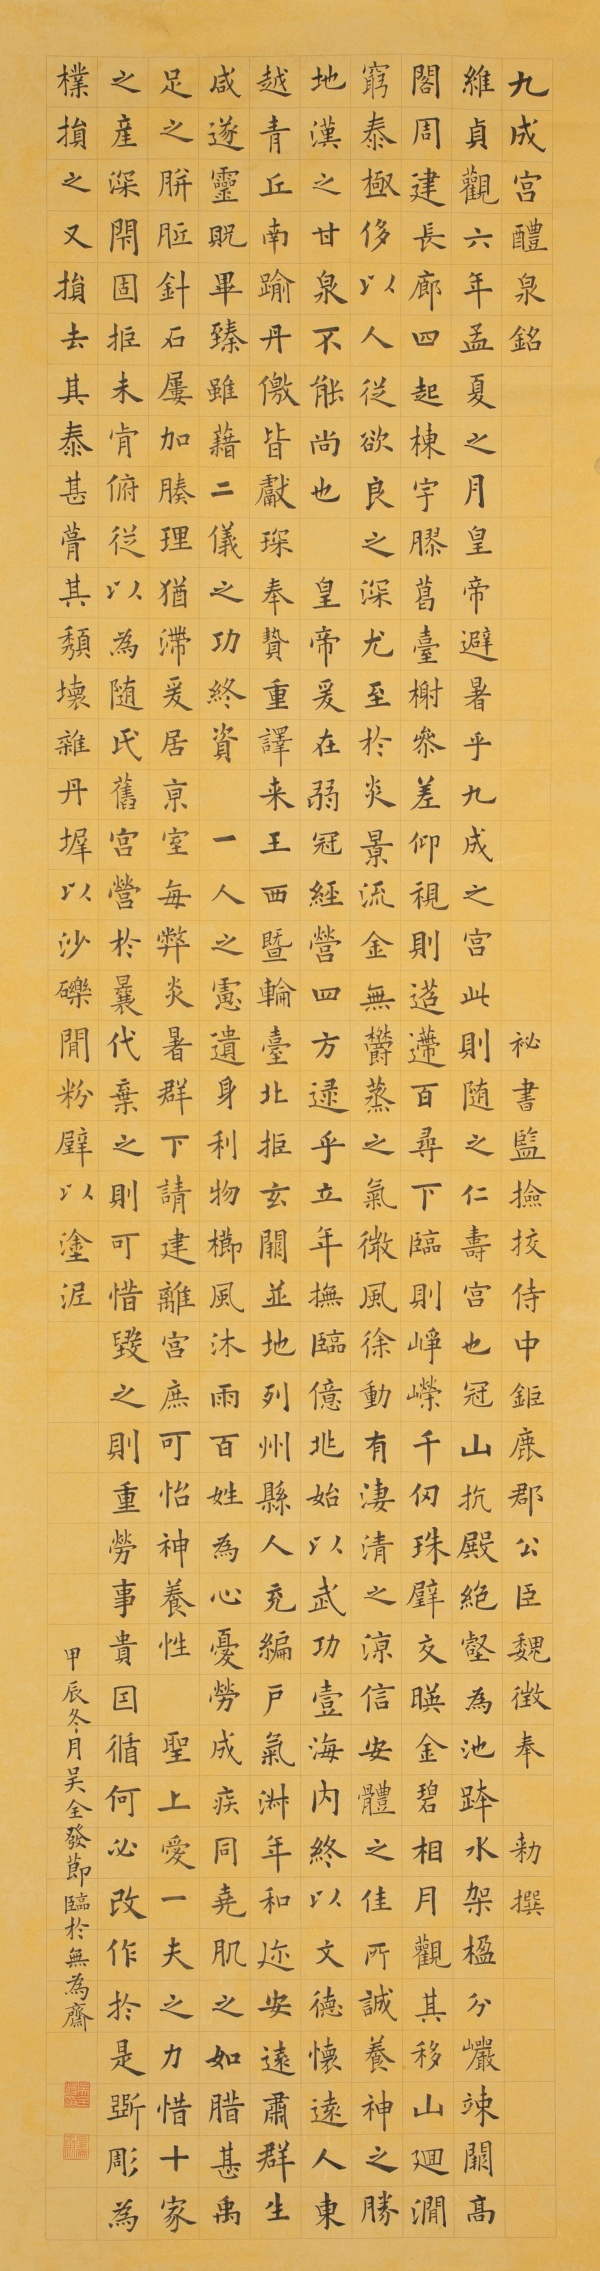 九成宮醴泉銘 祕書監撿挍侍中鉅鹿郡公臣魏徵奉 勑撰
維貞觀六年孟夏之月皇帝避暑乎九成之宮此則随之仁壽宮也冠山抗殿絕壑為池跨水架楹分巖竦闕高
閣周建長廊四起棟宇膠葛臺榭參差仰視則迢遰百尋下臨則崢嶸千仞珠璧交暎金碧相月觀其移山廻澗
窮泰極侈以人從欲良之深尤至於炎景流金無欝蒸之氣微風徐動有淒清之涼信安體之佳所誠養神之勝
地漢之甘泉不能尚也 皇帝爰在弱冠經營四方逮乎立年撫臨億兆始以武功壹海內終以文德懷遠人東
越青丘南踰丹儌皆獻琛奉贄重譯来王西暨輪臺北拒玄闕並地列州縣人充編戶氣淋年和迩安遠肅群生
咸遂靈貺畢臻雖藉二儀之功終資 一人之慮遺身利物櫛風沐雨百姓為心憂勞成疾同堯肌之如腊甚禹
足之腁胝針石屢加腠理猶滯爰居京室每弊炎暑群下請建離宮庶可怡神養性 聖上愛一夫之力惜十家
之產深閇固拒未肯俯從以為随氏舊宮營於曩代棄之則可惜毀之則重勞事貴因循何必改作於是斲彫為
樸損之又損去其泰甚葺其頹壞雜丹墀以沙礫間粉壁以塗泥
甲辰冬月吳全發節臨於無為齋